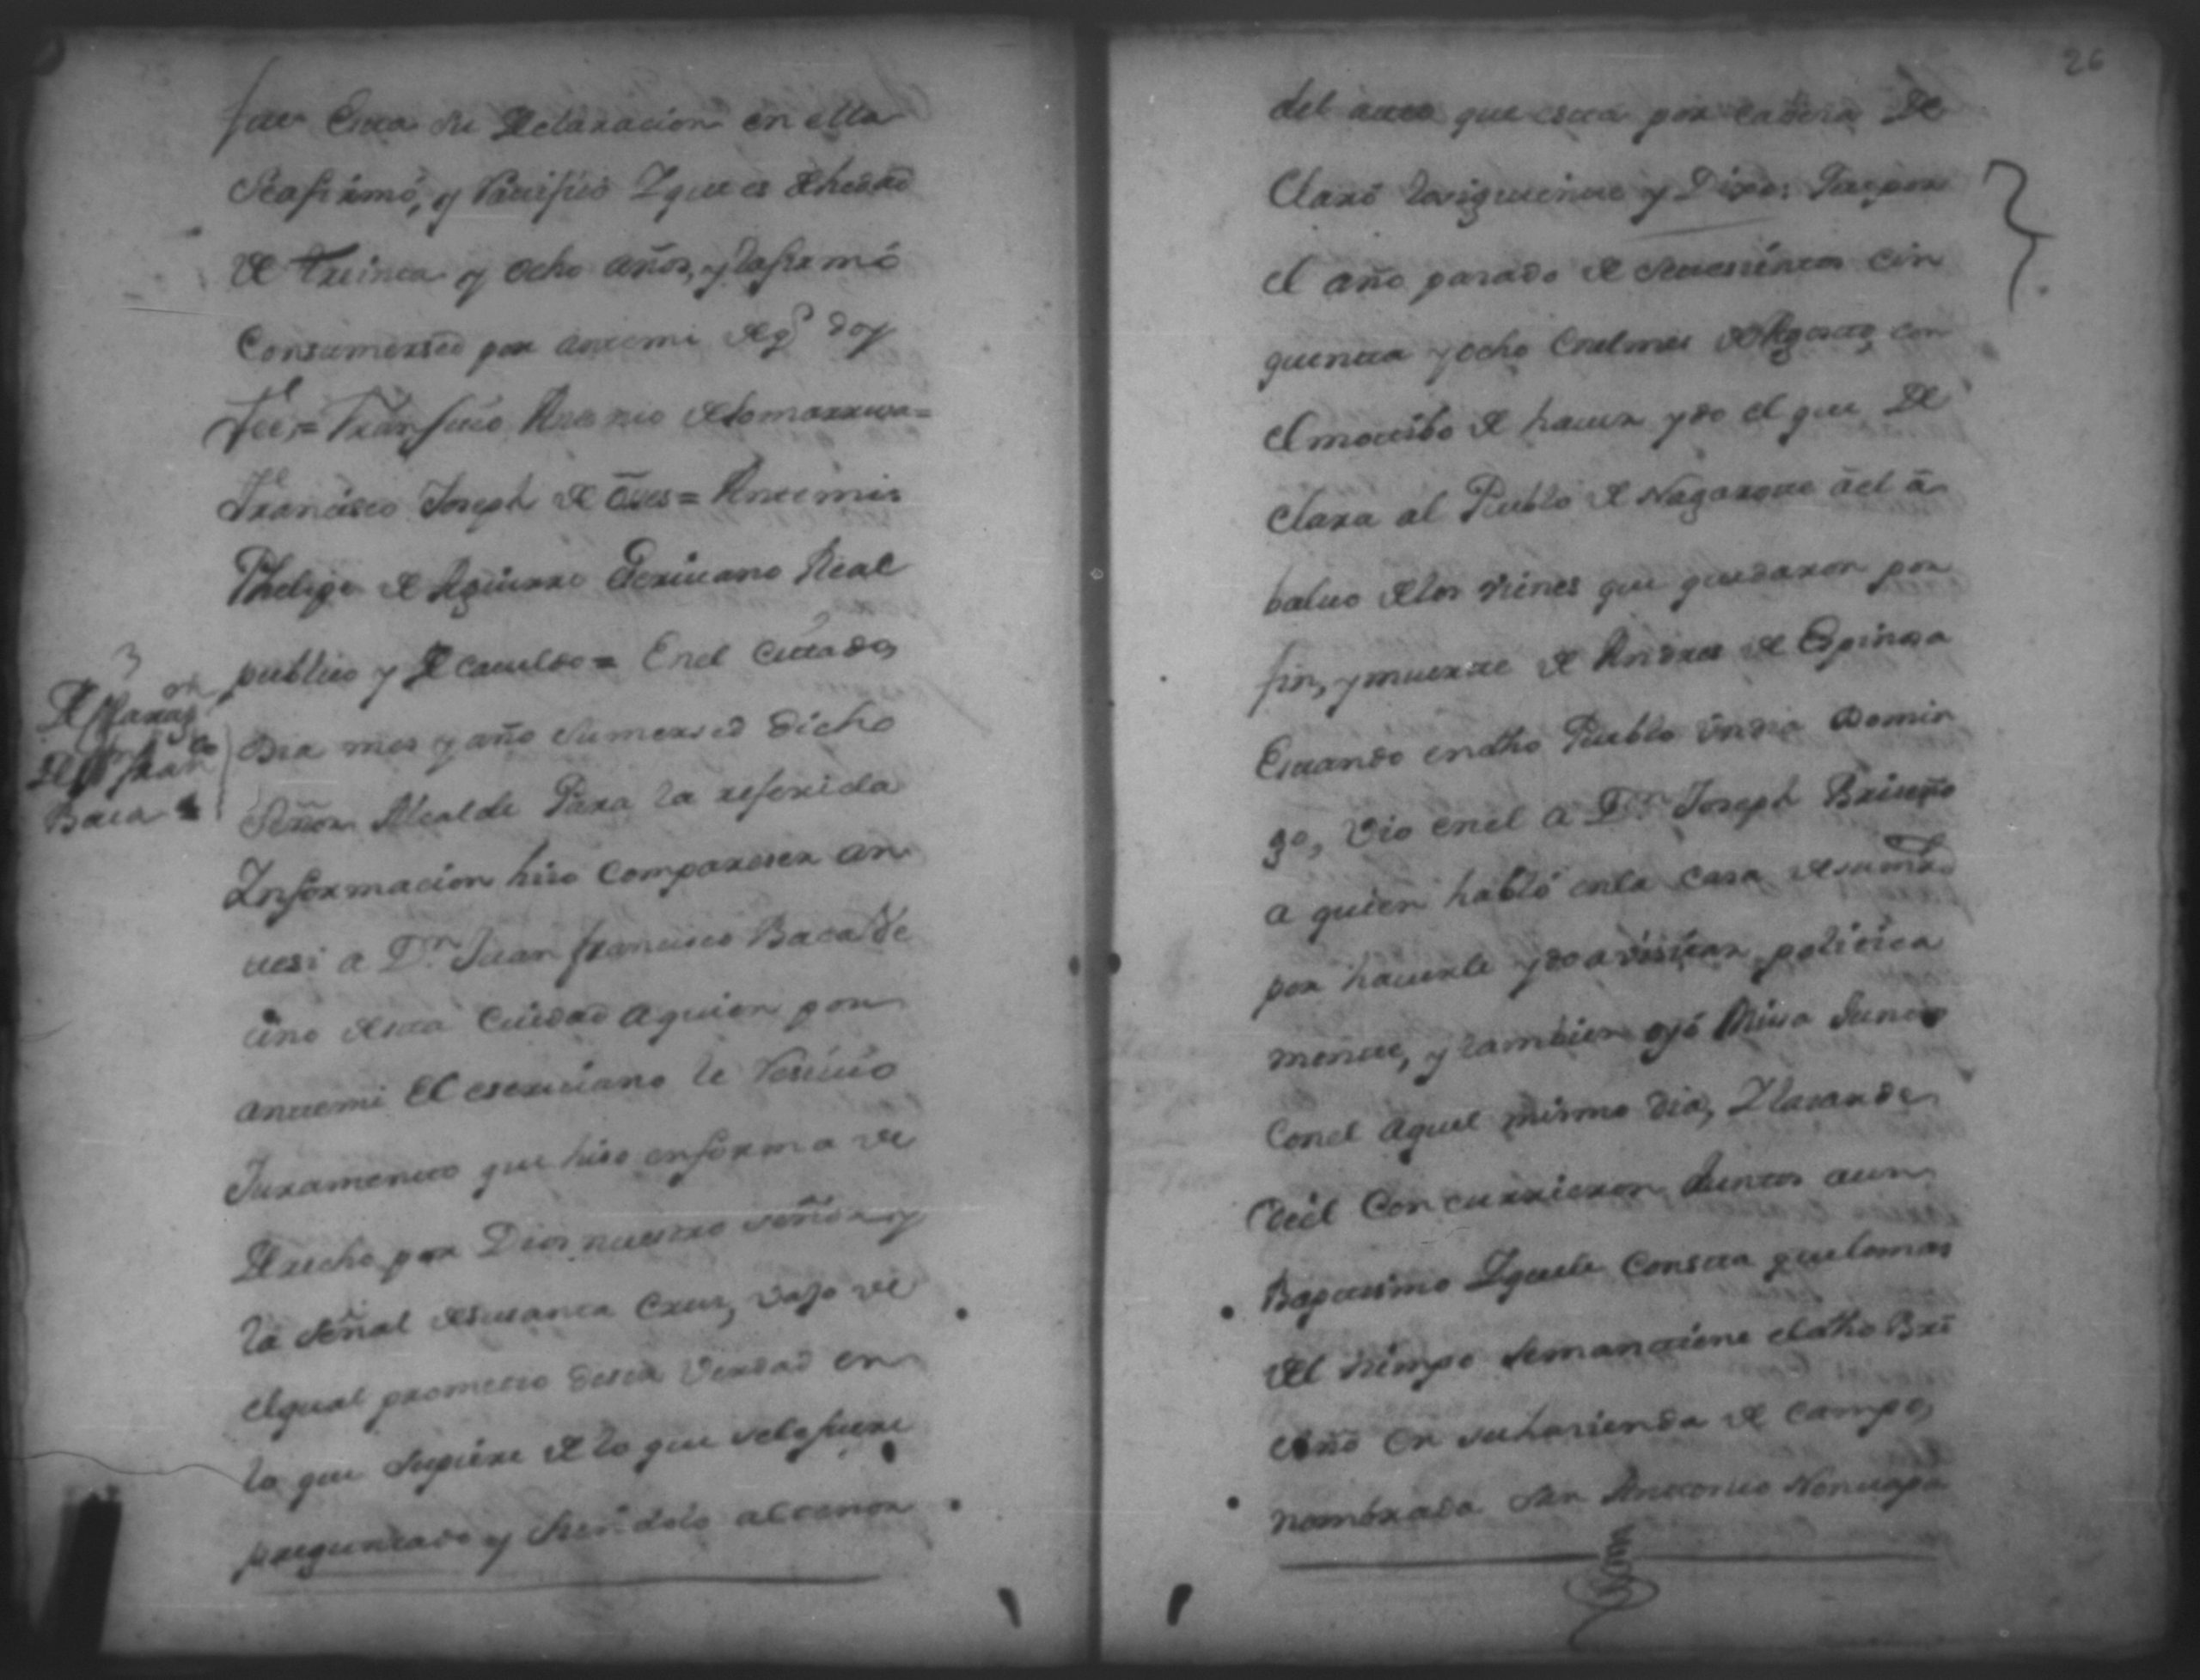 fue Esta su Declaracion en ella
Seafirmó, y Ratifico Y que es de hedad
de treinta y ocho años, y lafirmó
Consumersed por antemi de q.e doy
feé,= Fran.sco Antonio de
Francisco Joseph de = Antemi=
Phelipe de Aguirre Escrivano Real
publico y de cavildo = Enel citado,
Dia mes y año sumersed dicho
Señor Alcalde Para la referida
Informacion hiso Compareser an
tesi a D.n Juan francisco Baca Ve
sino desta Ciudad aquien por
antemi El escriviano le Resivio
Juramento que hiso enforma de
derecho por Dios nuestro señor y
la señal desusanta Cruz, vajo de
elqual prometio desir Verdad en
lo que supiere de lo que sele fuere
preguntado y siendolo altenor
3
Declaraz.on
de D.n Juan Fran.co
Baca
26
del auto que esta por cavesa De
Claró losiguiente y Dixo: Que por
el año pasado de setesientos cin
quenta y ocho Enelmes de Agosto, con
elmotibo de haver ydo el que De
Clara al Pueblo de Nagarote ael a
baluo delos vienes que quedaron por
fin, y muerte de Andres de Espinosa
Estando endho Pueblo undia Domin
go, Vio enel a D.n Joseph Briseño
a quien habló enla casa desumd
por haverle ydo avisitar politica
mente, y tambien oyó Misa Junto
Conel aquel mismo dia, Ylatarde
deél Concurrieron Juntos aun
Baptismo Yquele Consta quelomas
del tiempo semantiene eldho Bri
seño en suhasienda de campo,
nombrada San Antonio Nonuapa